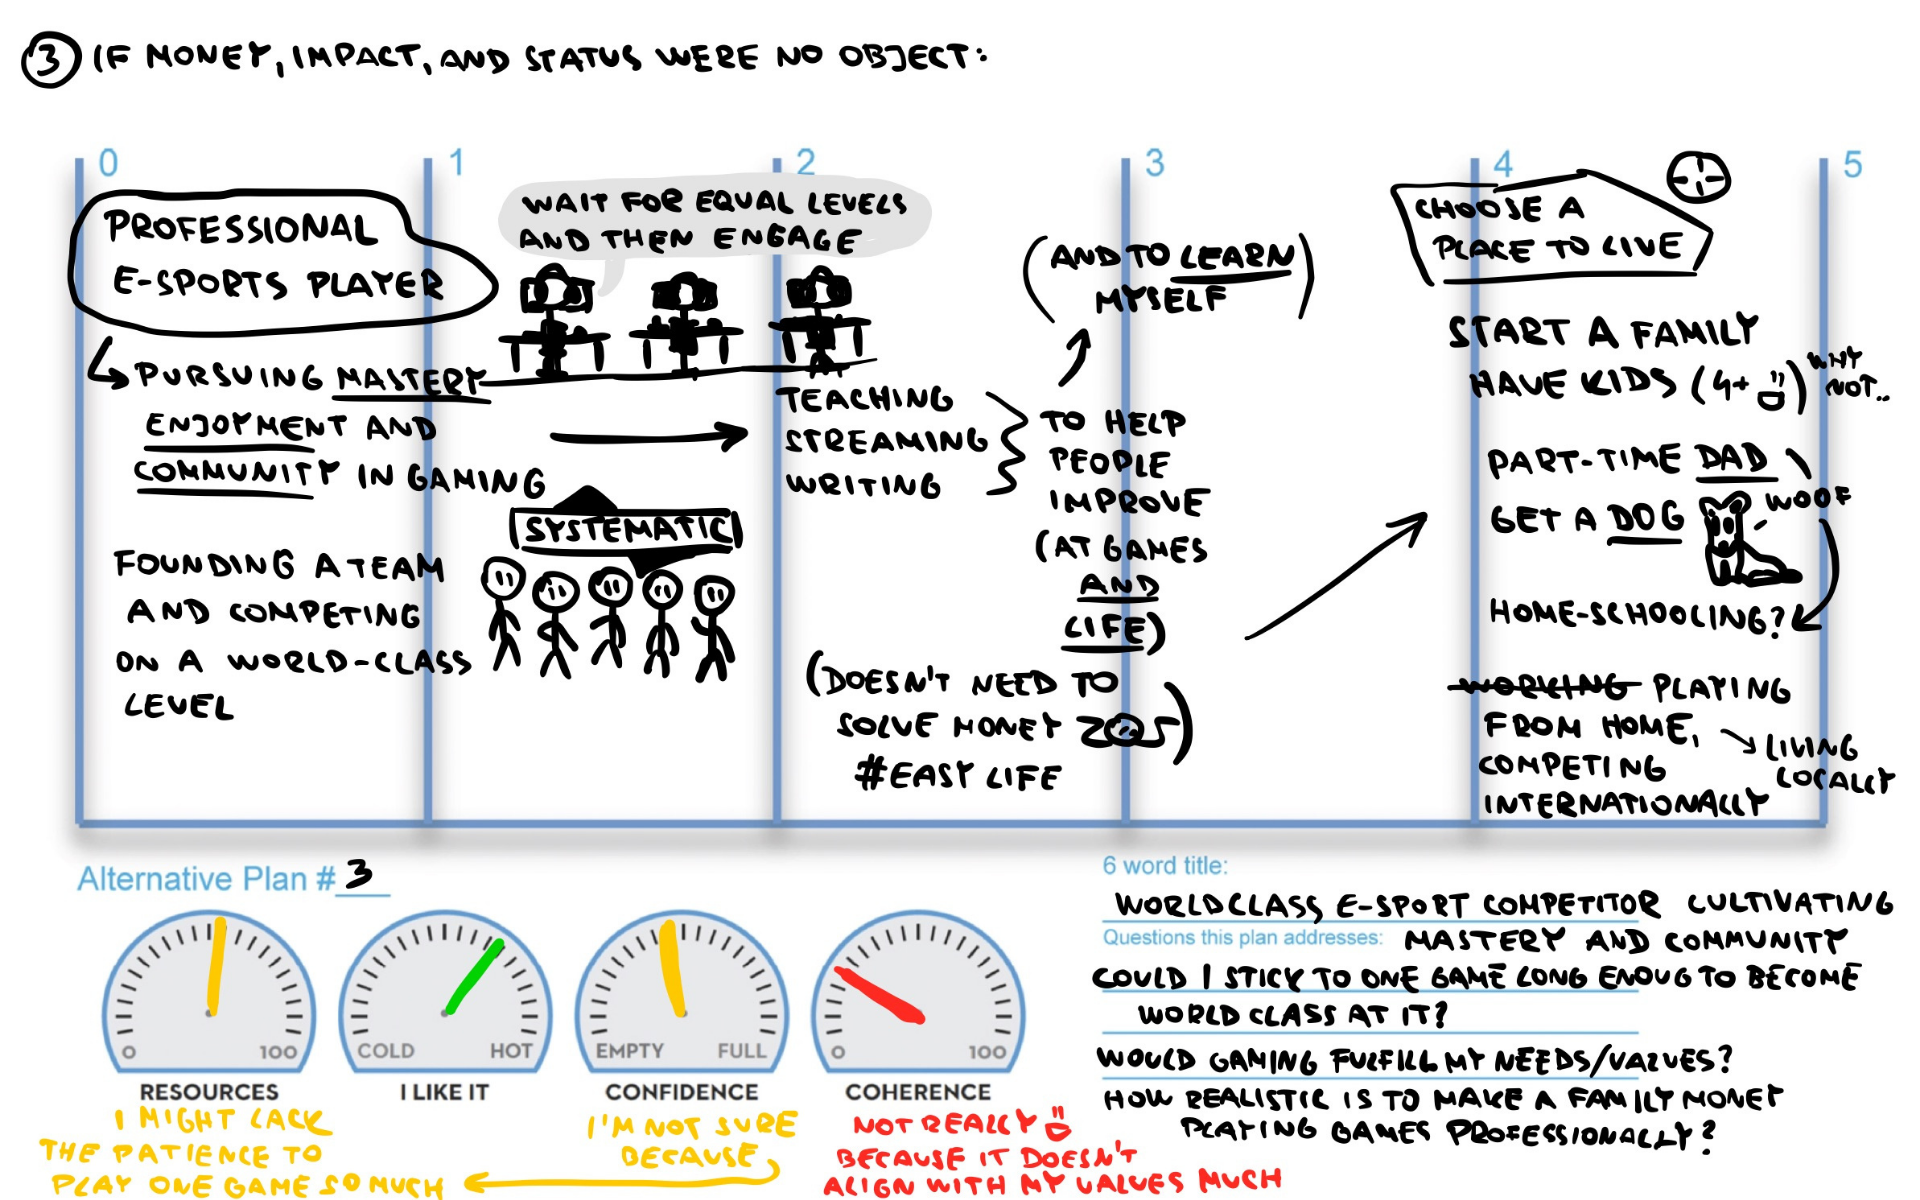 3 IF MONEY, IMPACT, AND STATUS WERE NO OBJECT:
0
1
2
3
4
5
PROFESSIONAL
E-SPORTS PLAYER
PURSUING MASTERY
ENJOYMENT AND
COMMUNITY IN GAMING
FOUNDING A TEAM
AND COMPETING
ON A WORLD-CLASS
LEVEL
WAIT FOR EQUAL LEVELS
AND THEN ENGAGE
SYSTEMATIC
TEACHING
STREAMING
WRITING
TO HELP
PEOPLE
IMPROVE
(AT GAMES
AND
LIFE)
(AND TO LEARN
MYSELF)
(DOESN'T NEED TO
SOLVE MONEY
#EASY LIFE
CHOOSE A
PLACE TO LIVE
START A FAMILY
HAVE KIDS (4+ ) WHY
NOT..
PART-TIME DAD
GET A DOG
WOOF
HOME-SCHOOLING?
WORKING PLAYING
FROM HOME,
COMPETING
INTERNATIONALLY
LIVING
LOCALLY
Alternative Plan # 3
0 100
RESOURCES
COLD HOT
I LIKE IT
EMPTY FULL
CONFIDENCE
0 100
COHERENCE
I MIGHT LACK
THE PATIENCE TO
PLAY ONE GAME SO MUCH
I'M NOT SURE
BECAUSE
NOT REALLY
BECAUSE IT DOESN'T
ALIGN WITH MY VALUES MUCH
6 word title:
WORLDCLASS E-SPORT COMPETITOR CULTIVATING
MASTERY AND COMMUNITY
Questions this plan addresses:
COULD I STICK TO ONE GAME LONG ENOUG TO BECOME
WORLD CLASS AT IT?
WOULD GAMING FULFILL MY NEEDS/VALUES?
HOW REALISTIC IS TO MAKE A FAMILY MONEY
PLAYING GAMES PROFESSIONALLY?